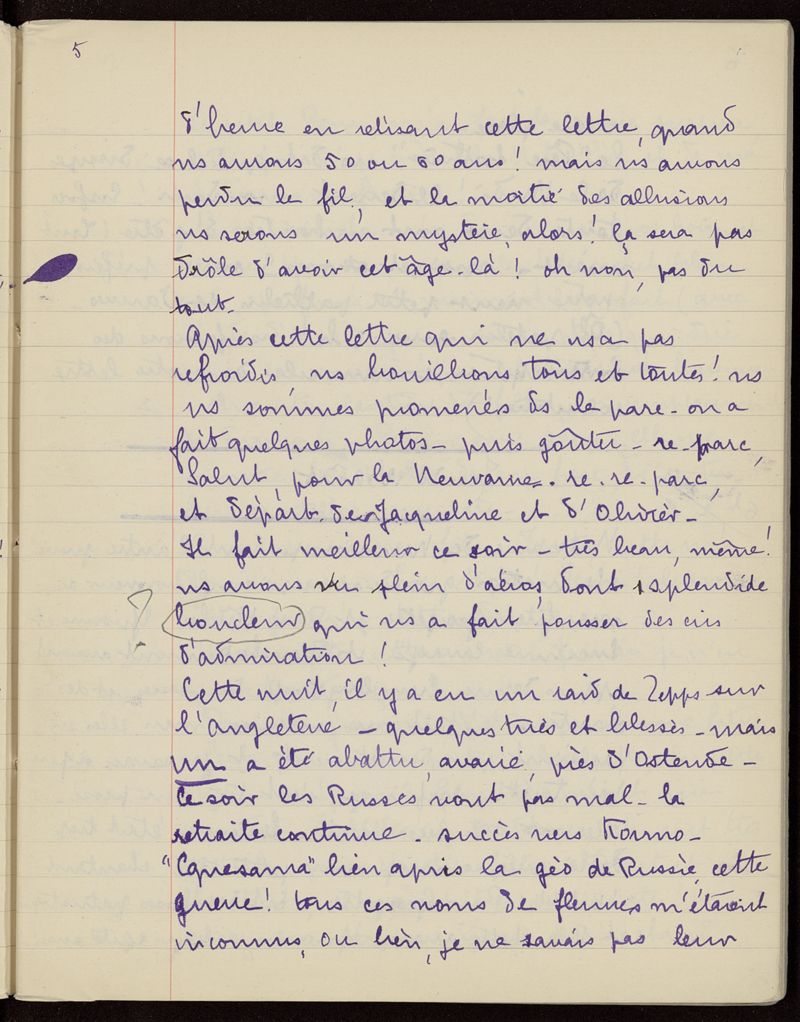 5
d'heure en relisant cette lettre, quand
ns aurons 50 ou 60 ans ! mais ns aurons
perdu le fil, et la moitié des allusions
ns serons un mystère, alors ! ça sera pas
drôle d'avoir cet âge-là ! oh non, pas du
tout -
Après cette lettre qui ne ns a pas
refroidis, ns bouillions tous et toutes ! ns
ns sommes promenés ds le parc - on a
fait quelques photos - puis goûter - re-parc,
Salut, pour la Neuvaine - re-re-parc,
et départ de Jacqueline et d'Olivier -
Il fait meilleur ce soir - très beau, même !
ns avons vu plein d'aéros, dont 1 splendide
? qui ns a fait pousser des cris
d'admiration !
Cette nuit, il y a eu un raid de Zepps sur
l'Angleterre - quelques tués et blessés - mais
un a été abattu, avarié, près d'Ostende -
Ce soir les Russes vont pas mal - la
retraite continue - succès vers Kormo -
bien après la géo de Russie, cette
guerre ! tous ces noms de fleuves m'étaient
inconnus, ou bien, je ne savais pas leur